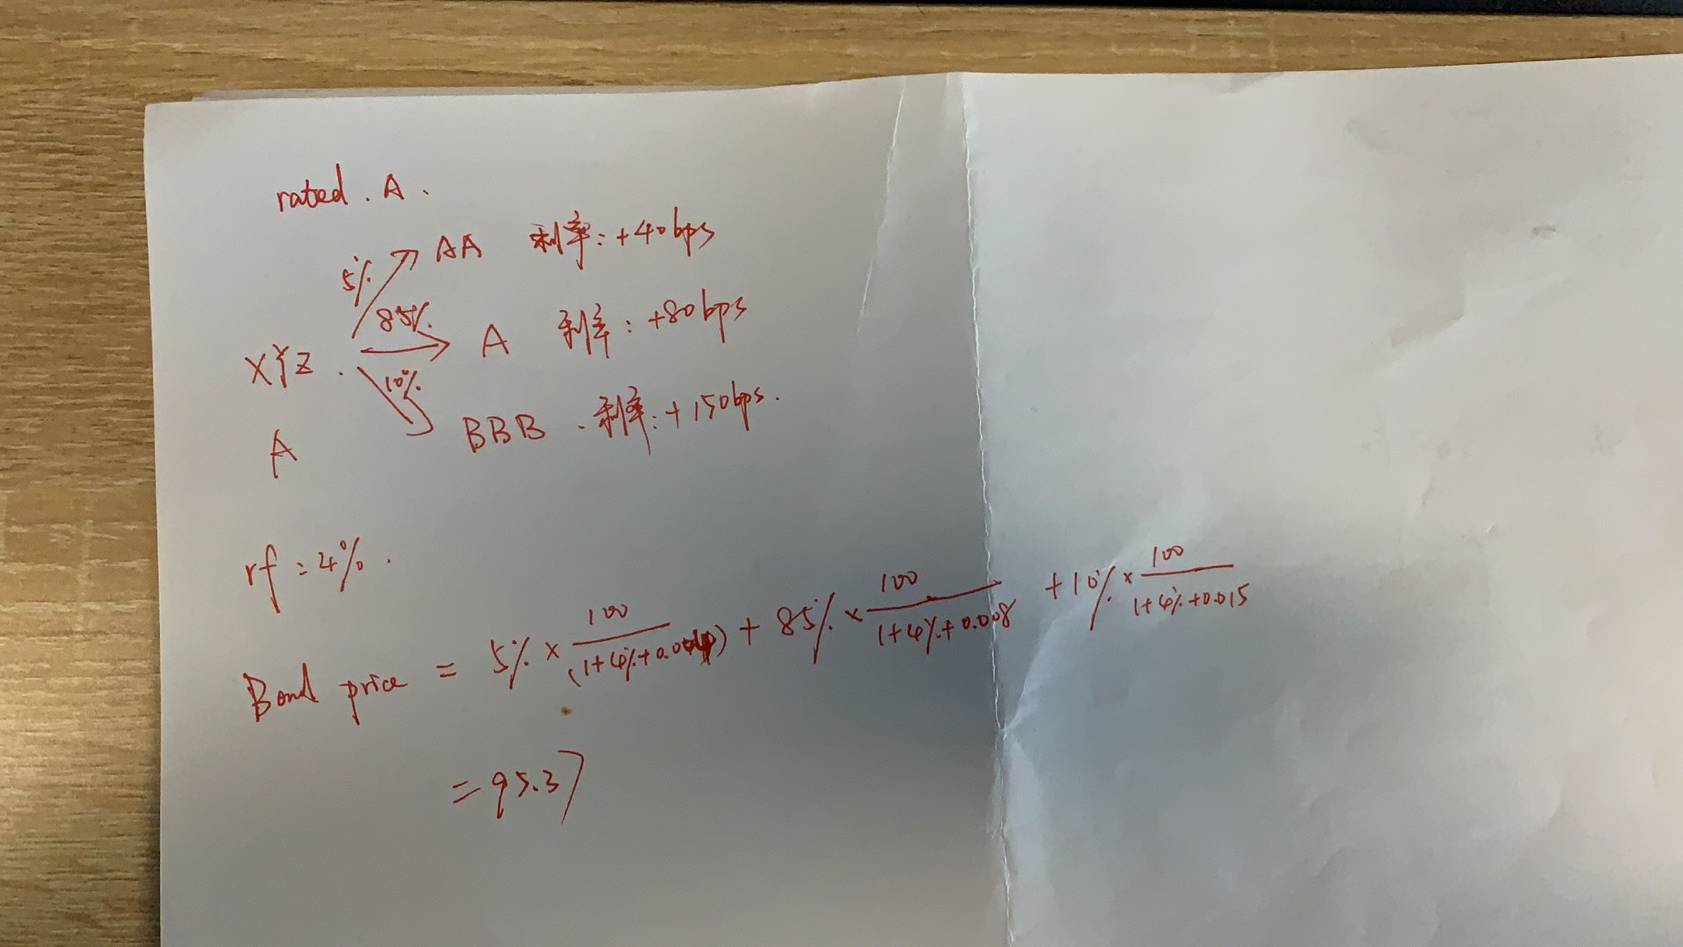 rated . A .
5% AA 利率: +40bps
XYZ . 85% A 利率: +80bps
10% BBB . 利率: +150bps.
A
rf = 4% .
Bond price = 5% × 100/(1+4%+0.004) + 85% × 100/1+4%+0.008 + 10% × 100/1+4%+0.015
= 95.37